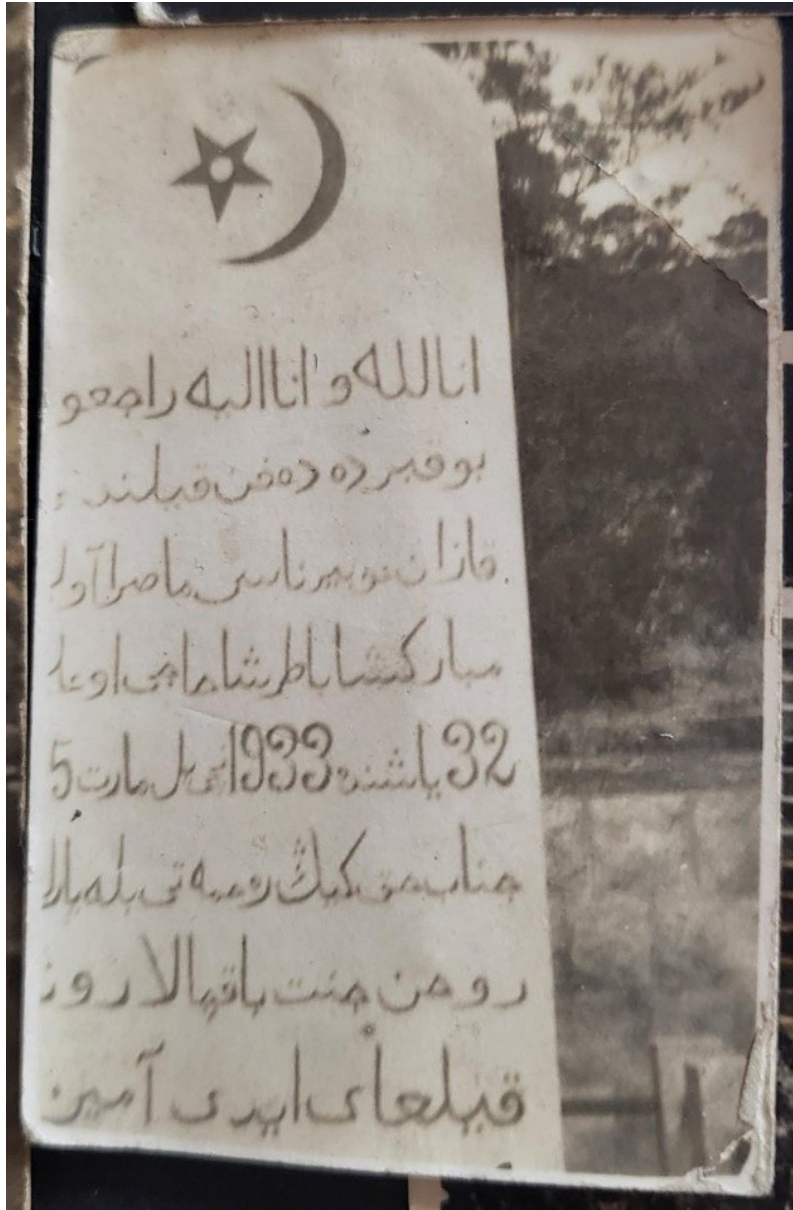 انا لله و انا اليه راجعو
بو قبرده دەفن قيلند
قازان گوبيرناسى ماصرا آول
مبارکشا باطرشا ماچى اوغل
32 ياشنده 1933نچى يل مارت 5
جناب حق کيڭ رحمه تى بله يالا
روحن جنت باقچالارون
قيلغاى ايدى آمين